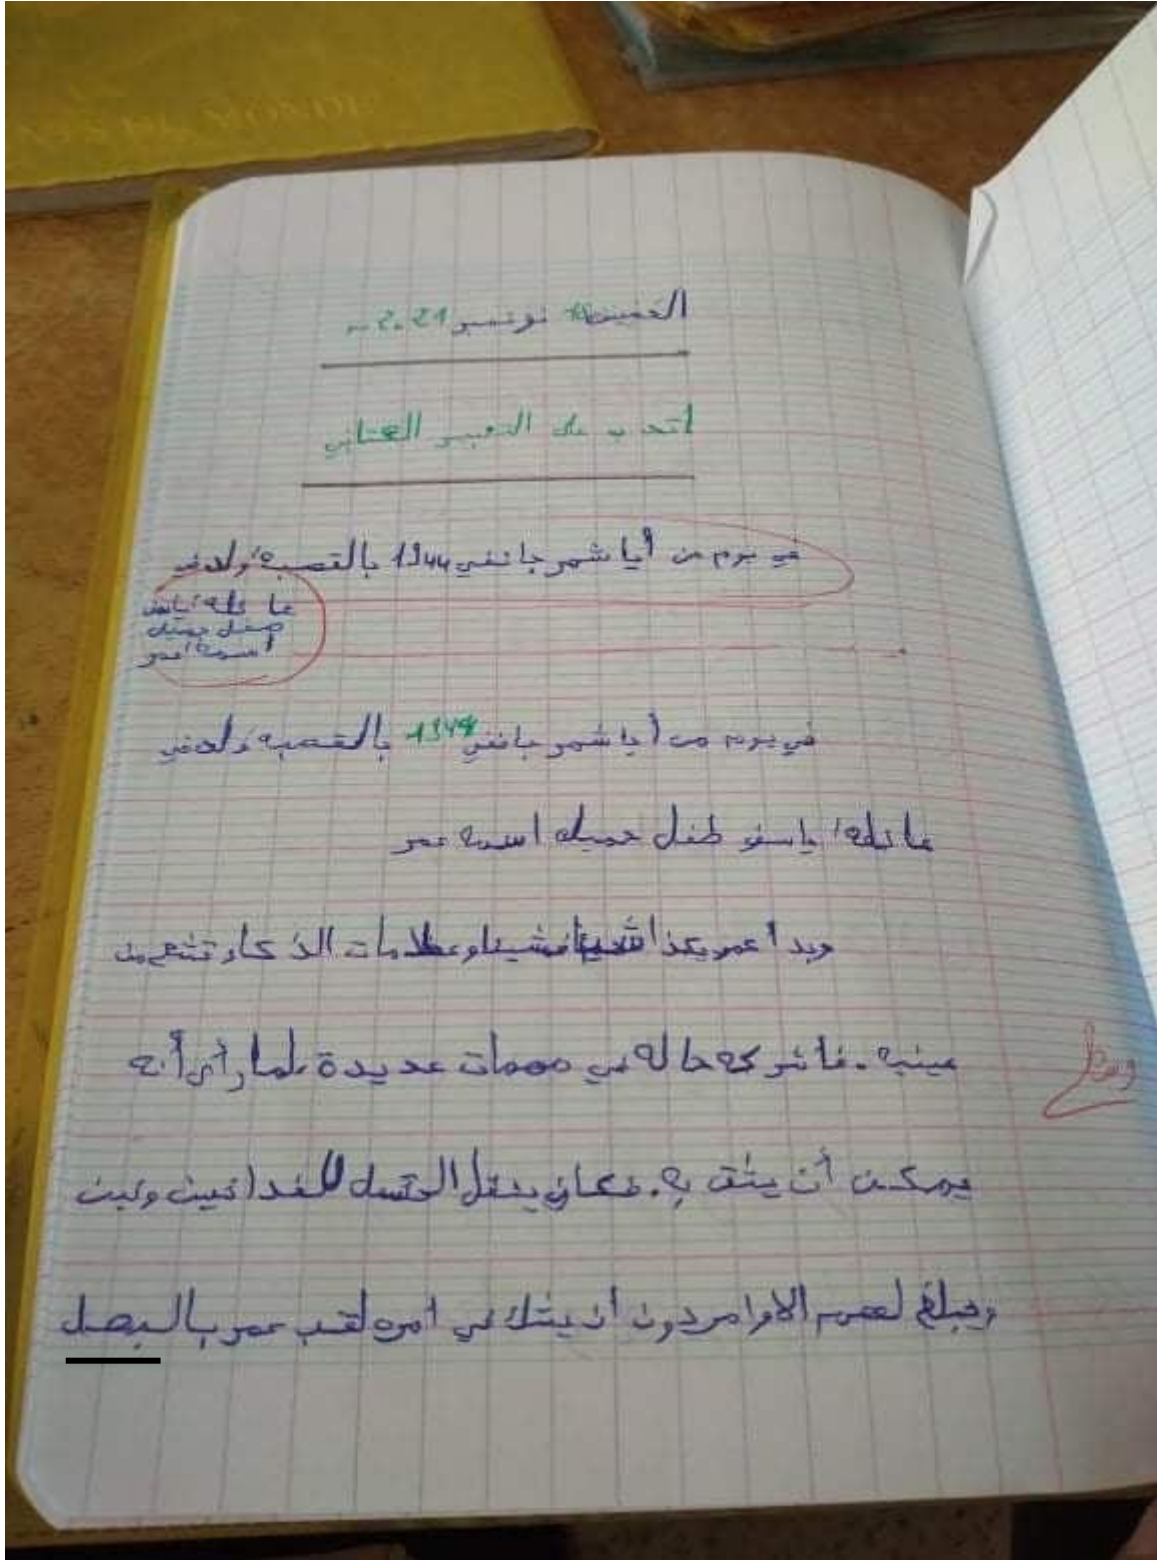 الخميس 18 نوفمبر 2021
أتدرب على التعبير الكتابي
في يوم من أيا شهر جانفي 1944 بالقصبة ولد في
عائلة ياسف
طفل جميل
اسمه عمر
في يوم من أيا شهر جانفي 1944 بالقصبة ولد في
عائلة ياسف طفل جميل اسمه عمر
وبدا عمر يكبر شيئا فشيئا وعلامات الذكاء تشع من
عينيه. فأشركه خاله في مهمات عديدة لما رأى أنه
يمكن أن يثق به. فكان ينقل الرسائل للفدائيين
ويبلغ لهم الاوامر دون أن يشك في أمره لقب عمر بالبصل
وسط